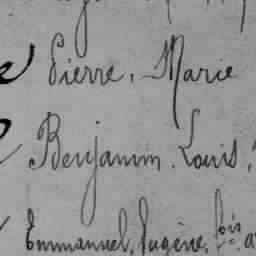 Pierre, Marie
Benjamin, Louis,
Emmanuel, Eugène,